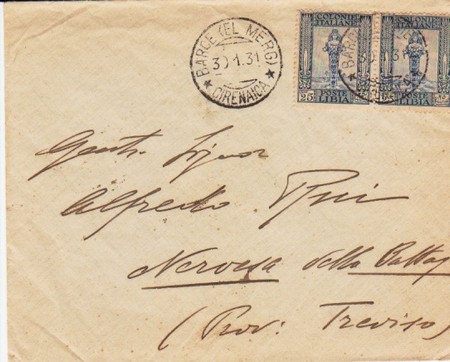 BARCE (EL MERG)
3 1.31
★ CIRENAICA ★
COLONIE ITALIANE
25 POSTE 25
LIBIA
COLONIE ITALIANE
POSTE
LIBIA
BARCE
Signor
Alfredo
Nervesa della Battag
(Prov: Treviso)